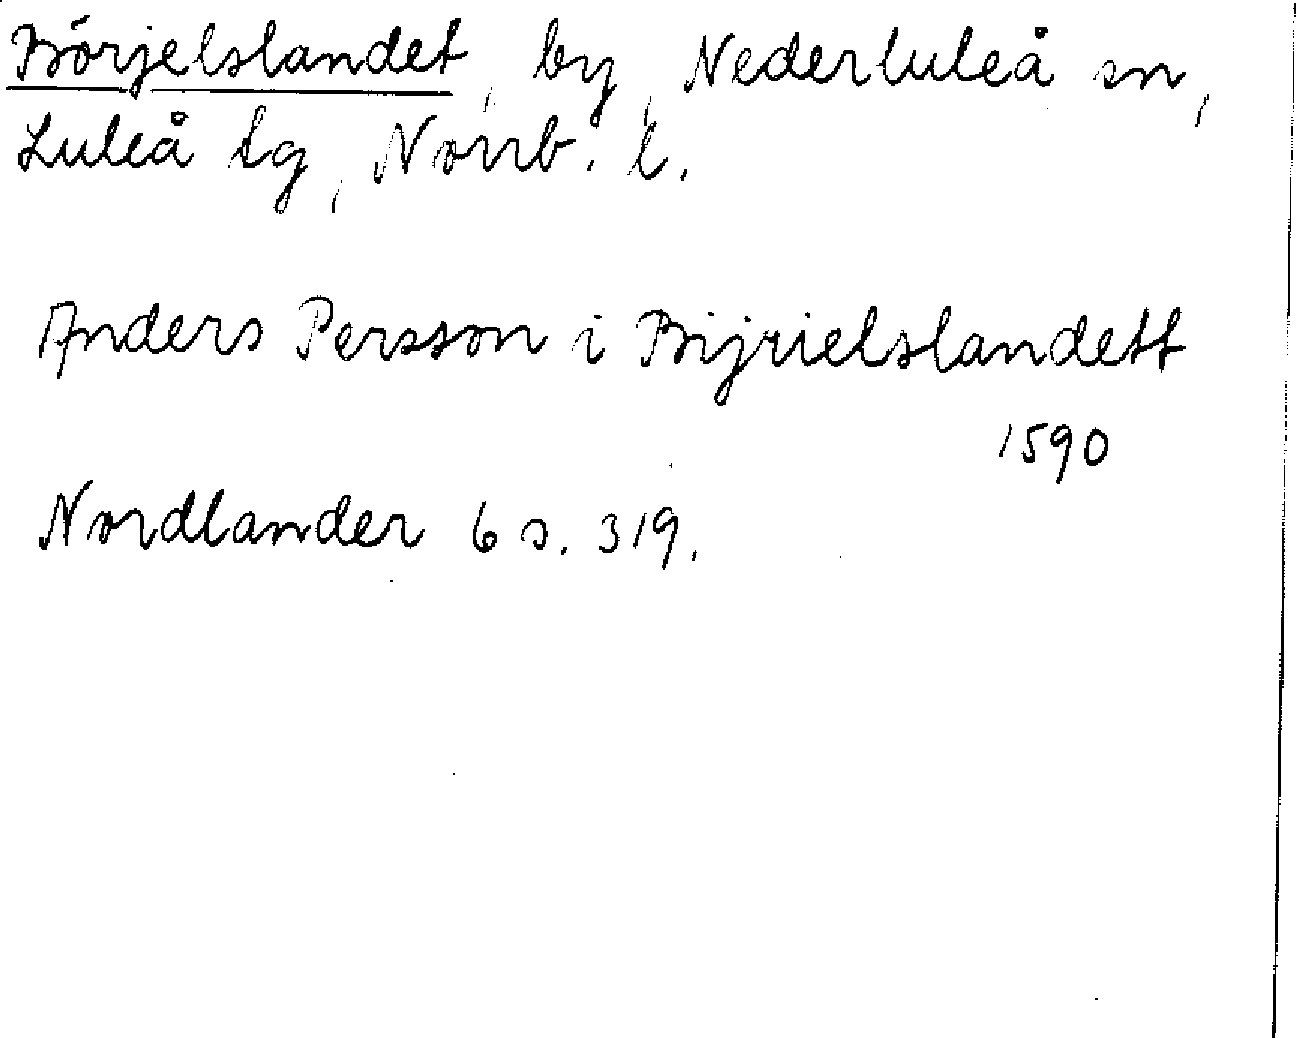 Börjelslandet, by, Nederluleå sn,
Luleå tg, Norrb. l.
Anders Persson i Bijrielslandett
1590
Nordlander 6 s. 319.